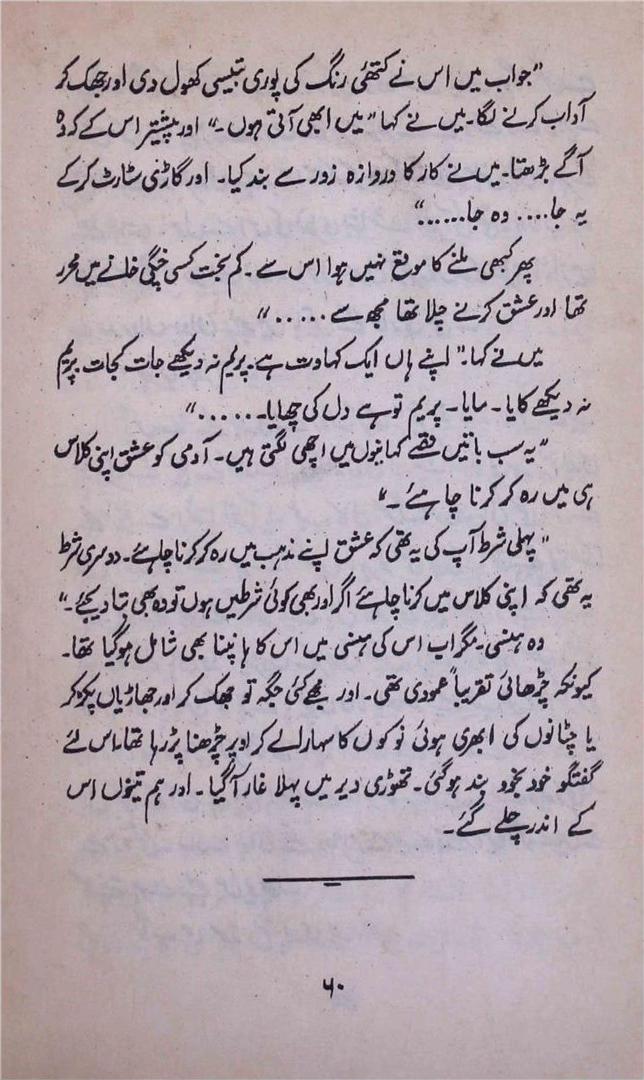 "جواب میں اس نے کتھئی رنگ کی پوری بتیسی کھول دی اور جھک کر
آداب کرنے لگا۔ میں نے کہا "میں ابھی آتی ہوں۔" اور پیشتر اس کے کہ وہ
آگے بڑھتا۔ میں نے کار کا دروازہ زور سے بند کیا۔ اور گاڑی سٹارٹ کرکے
یہ جا.... وہ جا......"
پھر کبھی ملنے کا موقع نہیں ہوا اس سے۔ کم بخت کسی چنگی خانے میں محرر
تھا اور عشق کرنے چلا تھا مجھ سے ....."
میں نے کہا۔" اپنے ہاں ایک کہاوت ہے۔ پریم نہ دیکھے جات کجات پریم
نہ دیکھے کایا۔ مایا۔ پریم تو ہے دل کی چھایا۔......"
"یہ سب باتیں قصے کہانیوں میں اچھی لگتی ہیں۔ آدمی کو عشق اپنی کلاس
ہی میں رہ کر کرنا چاہئے۔"
"پہلی شرط آپ کی یہ تھی کہ عشق اپنے مذہب میں رہ کر کرنا چاہئے۔ دوسری شرط
یہ تھی کہ اپنی کلاس میں کرنا چاہئے اگر اور بھی کوئی شرطیں ہوں تو وہ بھی بتا دیجئے۔"
وہ ہنسی۔ مگر اب اس کی ہنسی میں اس کا ہانپنا بھی شامل ہوگیا تھا۔
کیونکہ چڑھائی تقریباً عمودی تھی۔ اور مجھے کئی جگہ تو جھک کر اور جھاڑیاں پکڑ کر
یا چٹانوں کی ابھری ہوئی نوکوں کا سہارا لے کر اوپر چڑھنا پڑ رہا تھا۔ اس لئے
گفتگو خود بخود بند ہوگئی۔ تھوڑی دیر میں پہلا غار آگیا۔ اور ہم تینوں اس
کے اندر چلے گئے۔
۶۰